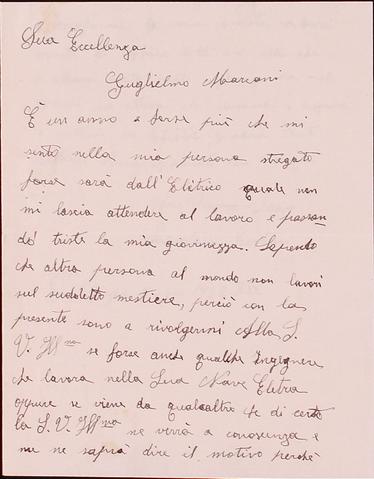 Sua Eccellenza
Guglielmo Marconi
È un anno e forse più che mi
sento nella mia persona stregato
forse sarà dall'Eletrico quale non
mi lascia attendere al lavoro e passan
dò triste la mia giovinezza. Sapendo
che altra persona al mondo non lavori
sul sudoletto mestiere, perciò con la
presente sono a rivolgermi Alla S.
V. Ill ma se forse anche qualche Ingegnere
che lavora nella Sua Nave Eletra
oppure se viene da qualcaltro e di certo
la S. V. Ill ma ne verrà a conoscenza e
me ne saprà dire il motivo perchè